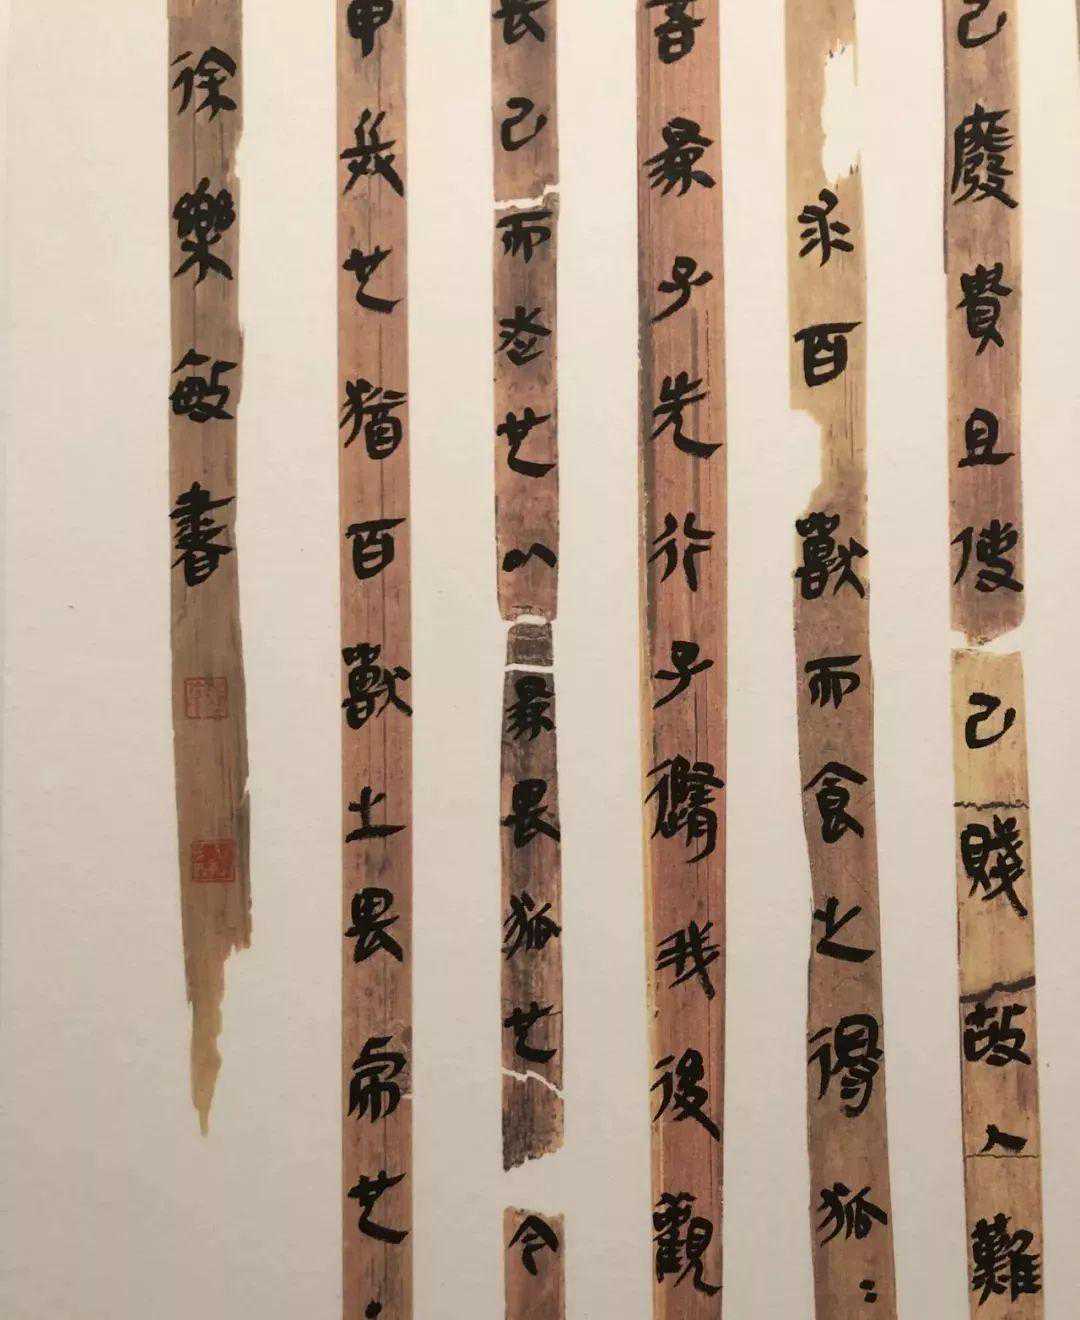 己廢貴且使己賤故人難
求百獸而食之得狐：
子先行子隨我後觀
長己而走也以為畏狐也今
甲兵也猶百獸之畏虎也·
徐樂敏書